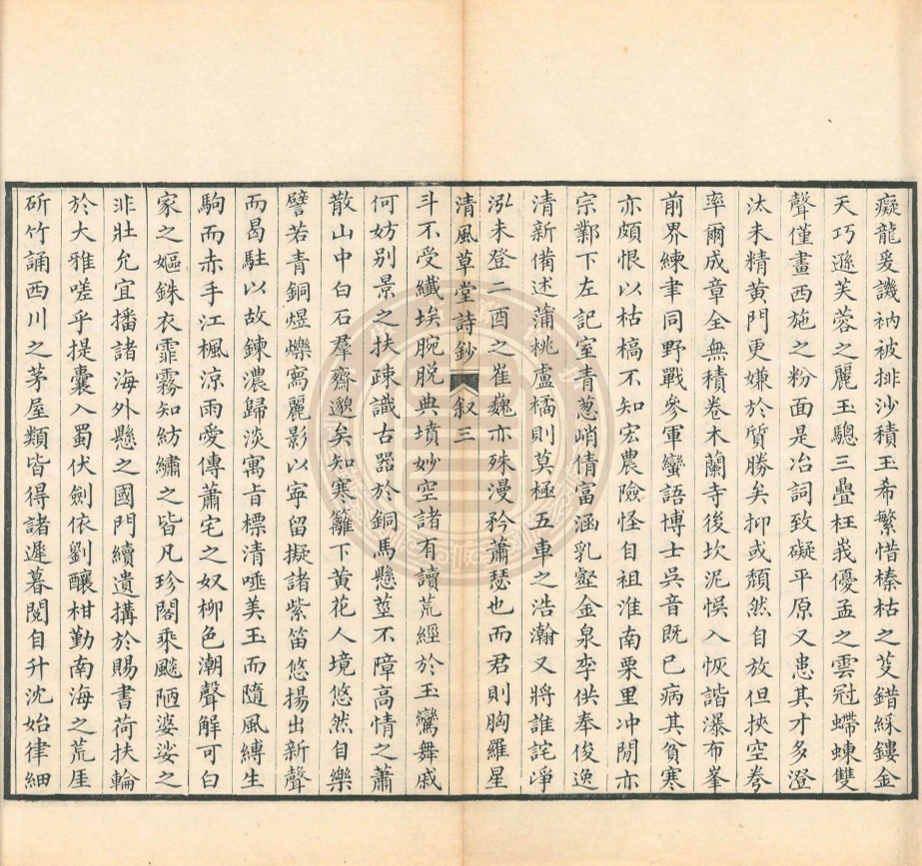 癡龍爰譏衲被排沙積玉希繁惜榛枯之芟錯綵鏤金
天巧遜芙蓉之麗玉驄三疊枉峩優孟之雲冠螮蝀雙
聲僅畫西施之粉面是冶詞致礙平原又患其才多澄
汰未精黄門更嫌於質勝矣抑或頽然自放但挾空巻
率爾成章全無積卷木蘭寺後坎泥悞入恢諧瀑布峯
前界練聿同野戰參軍蠻語博士吳音既已病其貧寒
亦頗恨以枯槁不知宏農險怪自祖淮南栗里冲閒亦
宗鄴下左記室青葱峭倩富涵乳壑金泉李供奉俊逸
清新備述蒲桃盧橘則莫極五車之浩瀚又將誰詫諍
泓未登二酉之崔巍亦殊漫矜蕭瑟也而君則胸羅星
清風草堂詩鈔 叙 三
斗不受纎埃腕脱典墳妙空諸有讀荒經於玉鸞舞戚
何妨别景之扶疎識古器於銅馬懸莖不障高情之蕭
散山中白石羣齋邈矣知寒籬下黄花人境悠然自樂
譬若青銅煜爍寫麗影以寜留擬諸紫笛悠揚出新聲
而曷駐以故鍊濃歸淡寓㫖標清唾美玉而隨風縛生
駒而赤手江楓涼雨愛傳蕭宅之奴柳色潮聲解可白
家之嫗銖衣霏霧知紡繡之皆凡珍閣乘飈陋婆娑之
非壯允宜播諸海外懸之國門續遺搆於賜書荷扶輪
於大雅嗟乎提囊入蜀伏劍依劉釀柑勤南海之荒厓
斫竹誦西川之茅屋類皆得諸遲暮閲自升沈始律細